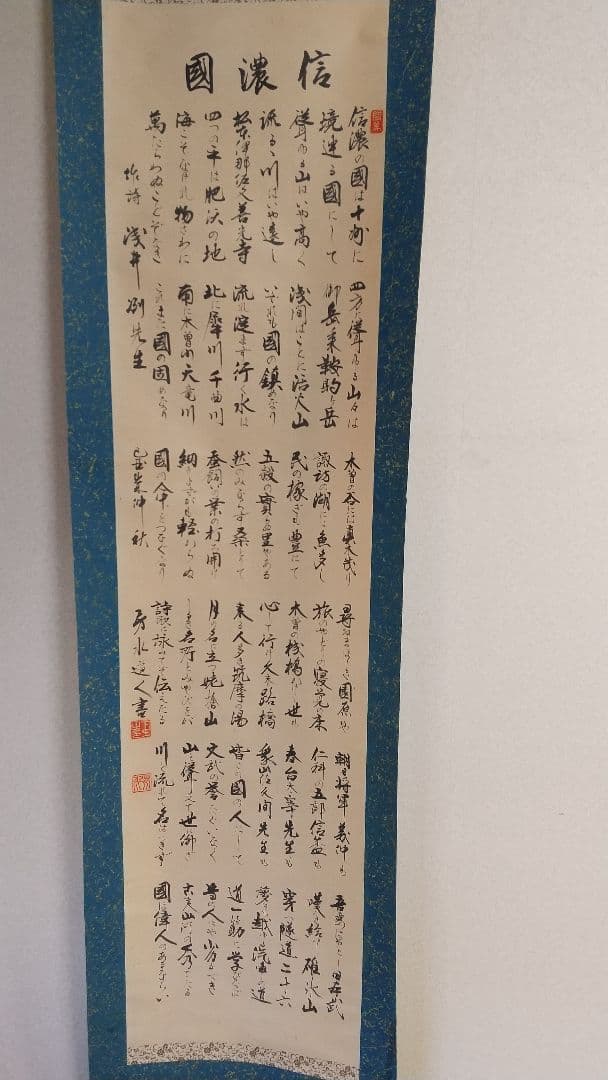 信濃國
信濃の国は十州に
境連る國にして
聳ゆる山はいや高く
流るゝ川はいや遠し
松本伊那佐久善光寺
四つの平は肥沃の地
海こそなけれ物さわに
萬たらわぬことぞなき
四方に聳ゆる山々は
御岳乗鞍駒ヶ岳
浅間はことに活火山
いづれも國の鎮めなり
流れ淀まず行く水は
北に犀川千曲川
南に木曽川天竜川
これまた國の固めなり
木曽の谷には真木茂り
諏訪の湖には魚多し
民の稼ぎも豊にて
五穀の實らぬ里やある
然のみならず桑とりて
蚕飼いの業の打ち開け
細きよすがも軽からぬ
國の命をつなぐなり
尋ねまほしき園原や
旅のやどりの寝覚の床
木曽の桟かけし世も
心して行け久米路橋
来る人多き筑摩の湯
月の名に立つ姨捨山
しるき名所とみやびをが
詩歌に詠てぞ伝えたる
朝日将軍義仲も
仁科の五郎信盛も
春台太宰先生も
象山佐久間先生も
皆此國の人にして
文武の誉たぐいなく
山と聳えて世に仰ぎ
川と流れて名はつきず
吾妻はやとし日本武
嘆き給いし碓氷山
穿つ隧道二十六
夢にも越ゆる汽車の道
道一筋に学びなば
昔の人にや劣るべき
古来山河の秀でたる
國は偉人のあるならい
作詩 浅井洌先生
仲秋
水道人書